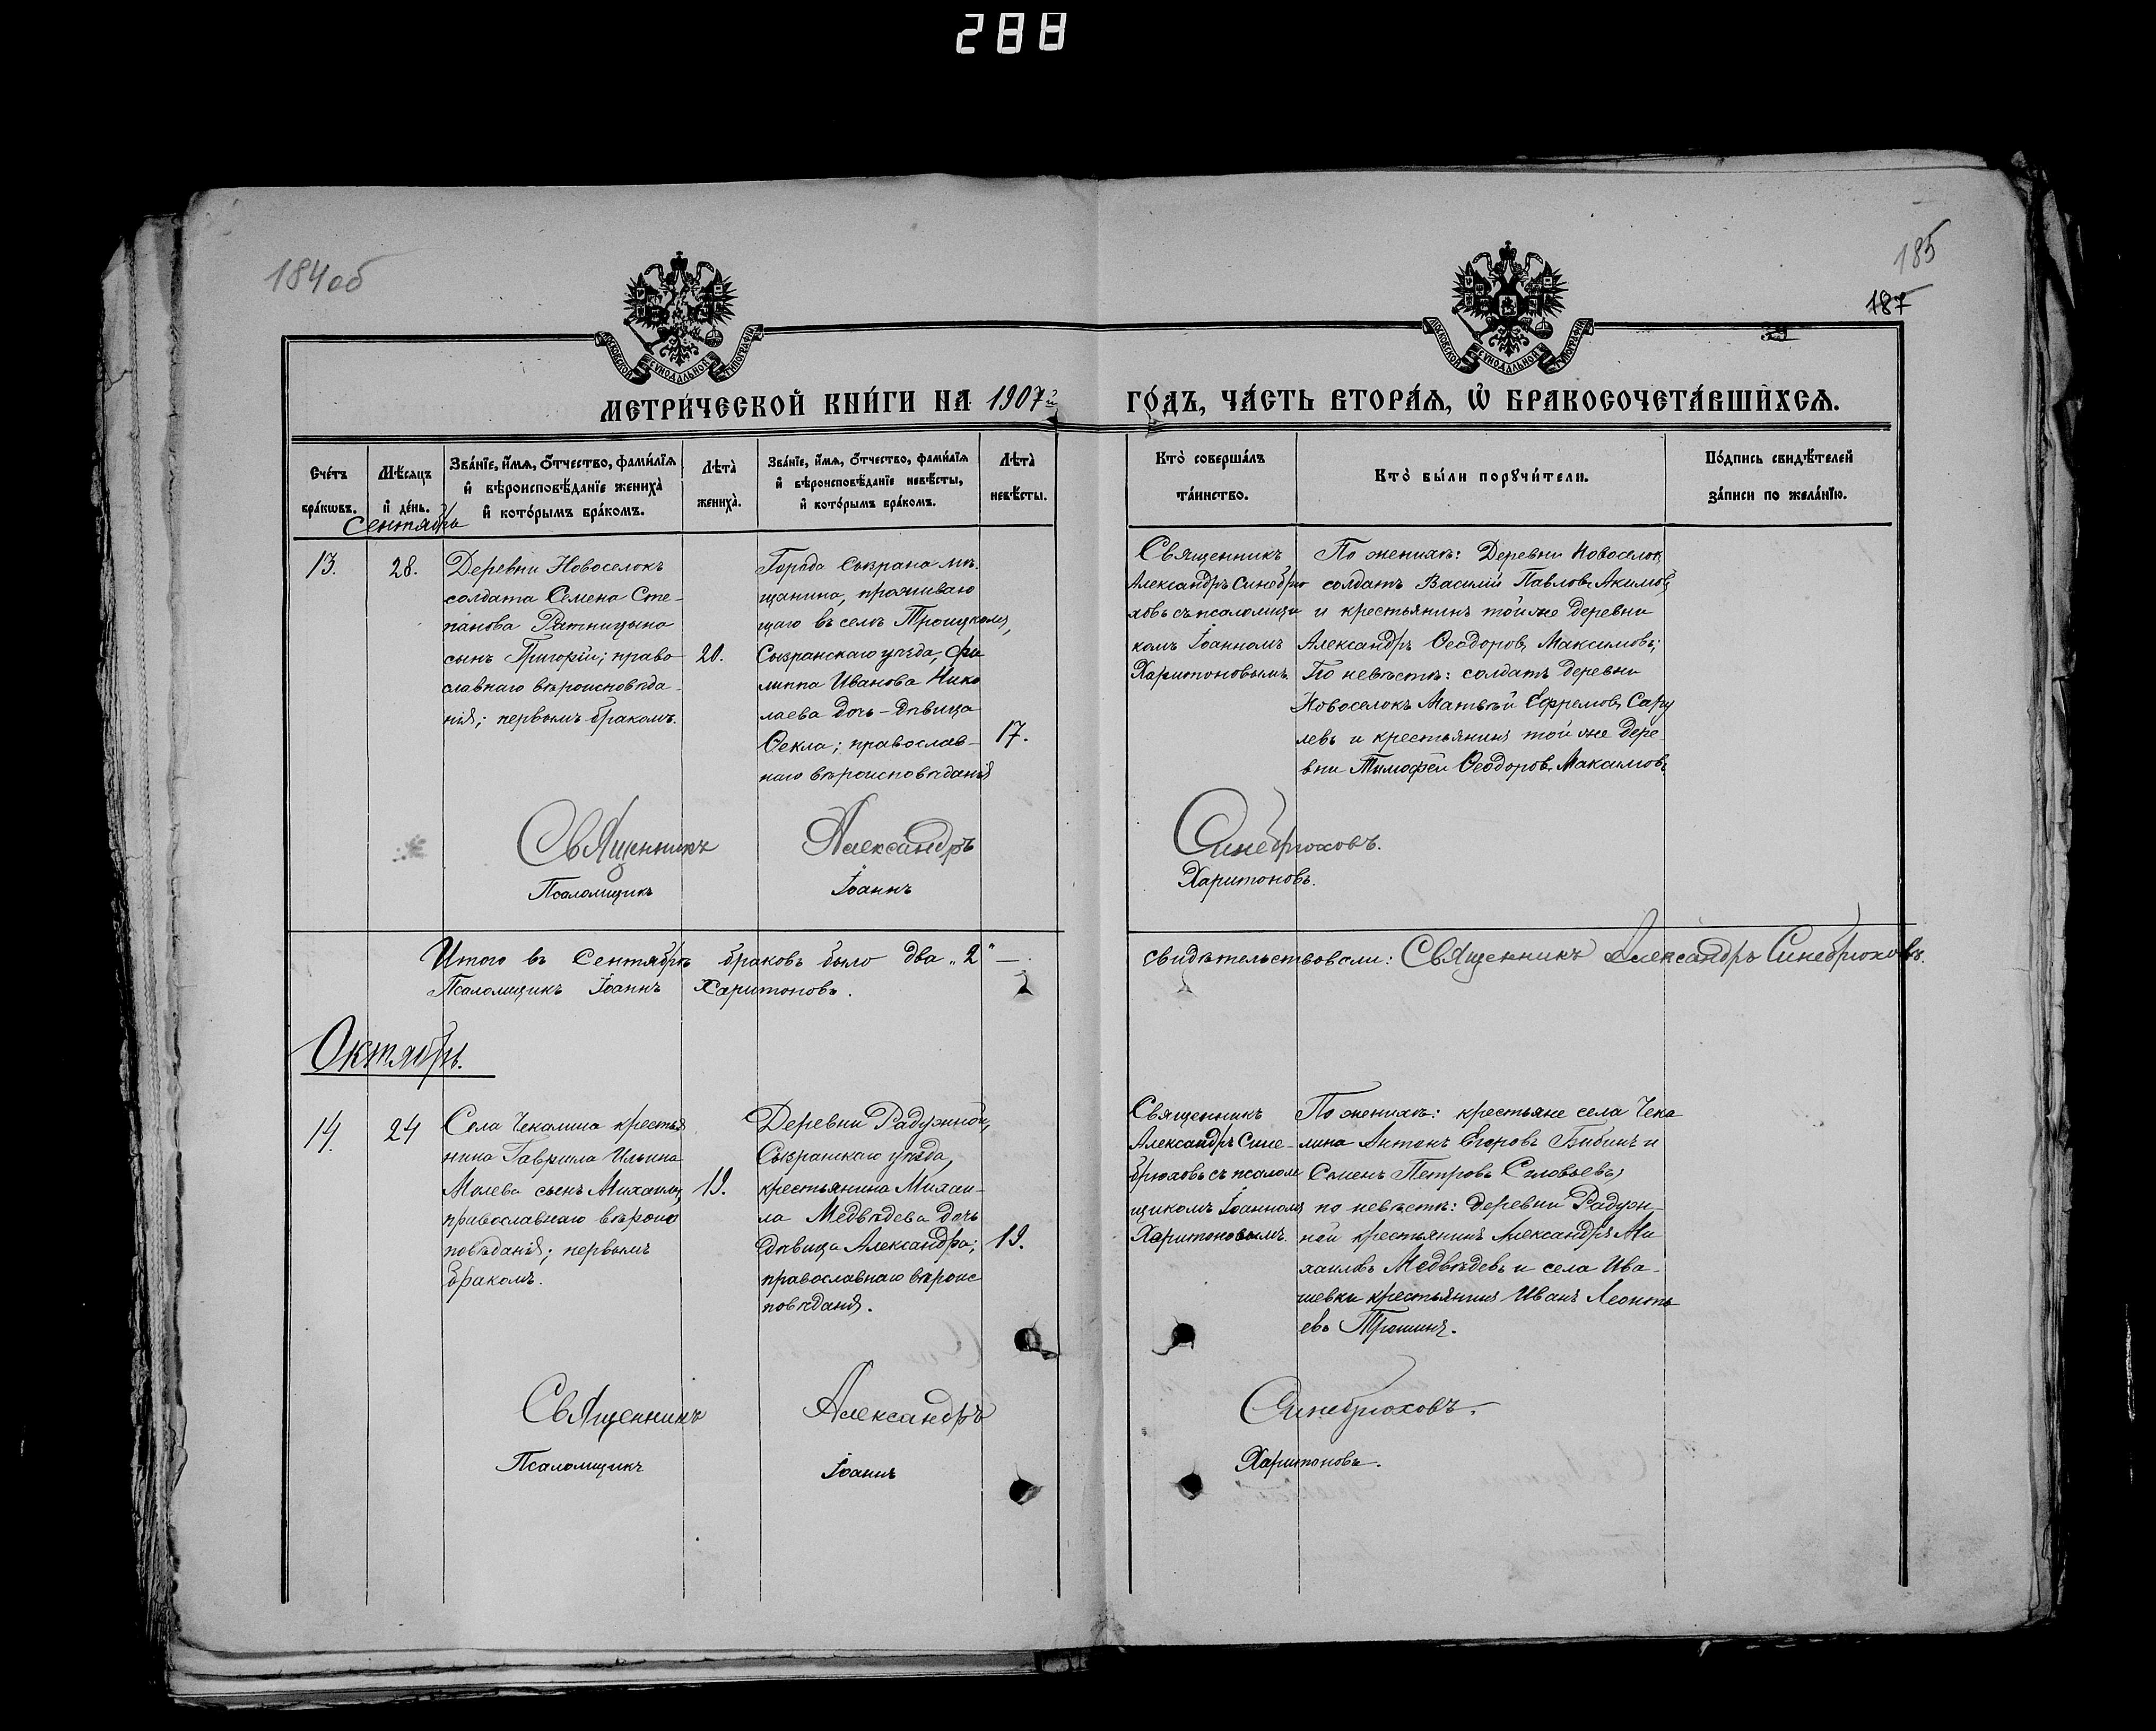 288
184 об
185
187
39
МОСКОВСКОЙ СѴНОДАЛЬНОЙ ТИПОГРАФІИ
МОСКОВСКОЙ СѴНОДАЛЬНОЙ ТИПОГРАФІИ
МЕТРИ́ЧЕСКОЙ КНИ́ГИ НА 1907й ГО́ДЪ, ЧА́СТЬ ВТОРА́Я, Ѡ҆ БРАКОСОЧЕТА́ВШИХСЯ.
Сче́тъ
бра́кѡвъ.
Мѣ́сяцъ
и҆ де́нь.
Зва́нїе, и҆́мя, ѻ҆́тчество, фами́лїя
и҆ вѣроисповѣ́данїе жениха̀
и҆ кото́рымъ бра́комъ.
Лѣта̀
жениха̀.
Зва́нїе, и҆́мя, ѻ҆́тчество, фами́лїя
и҆ вѣроисповѣ́данїе невѣ́сты,
и҆ кото́рымъ бра́комъ.
Лѣта̀
невѣ́сты.
Кто̀ соверша́лъ
та́инство.
Кто̀ бы́ли порꙋчи́тели.
По́дпись свидѣ́телей
за́писи по жела́нїю.
Сентябрь
13.
28.
Деревни Новоселокъ
солдата Семена Сте-
панова Ратницына
сынъ Григорій; право
славнаго вѣроисповѣда-
нія; первымъ бракомъ.
20.
Города Сызрана мѣ-
щанина, проживаю
щаго въ селѣ Троицкомъ,
Сызранскаго уѣзда, Фи
липпа Иванова Нико
лаева дочь-дѣвица
Ѳекла; православ-
наго вѣроисповѣданія
17.
Священникъ
Александръ Синебрю
ховъ съ псаломщи
комъ Іоанномъ
Харитоновымъ.
По женихѣ: Деревни Новоселокъ
солдатъ Василій Павловъ Акимовъ
и крестьянинъ той же деревни
Александръ Ѳеодоровъ Максимовъ;
По невѣстѣ: солдатъ деревни
Новоселокъ Матвѣй Ефремовъ Сару
левъ и крестьянинъ той же дере
вни Тимофей Ѳеодоровъ Максимовъ
Священникъ Александръ Синебрюховъ.
Псаломщикъ Іоаннъ Харитоновъ.
Итого въ Сентябрѣ браковъ было два „2“ — свидѣтельствовали: Священникъ Александръ Синебрюховъ.
Псаломщикъ Іоаннъ Харитоновъ.
Октябрь.
14.
24
Села Чекалина крестья
нина Гаврила Ильина
Молева сынъ Михаилъ,
православнаго вѣроис
повѣданія; первымъ
бракомъ.
19.
Деревни Радужной,
Сызранскаго уѣзда,
крестьянина Михаи-
ла Медвѣдева дочь
дѣвица Александра;
православнаго вѣроис
повѣданія.
19.
Священникъ
Александръ Сине-
брюховъ съ псалом
щикомъ Іоанномъ
Харитоновымъ.
По женихѣ: крестьяне села Чека
лина Антонъ Егоровъ Бибинъ и
Семенъ Петровъ Соловьевъ,
по невѣстѣ: деревни Радуж-
ной крестьянинъ Александръ Ми
хаиловъ Медвѣдевъ и села Ива-
шевки крестьянинъ Иванъ Леонть
евъ Трошинъ.
Священникъ Александръ Синебрюховъ.
Псаломщикъ Іоаннъ Харитоновъ.